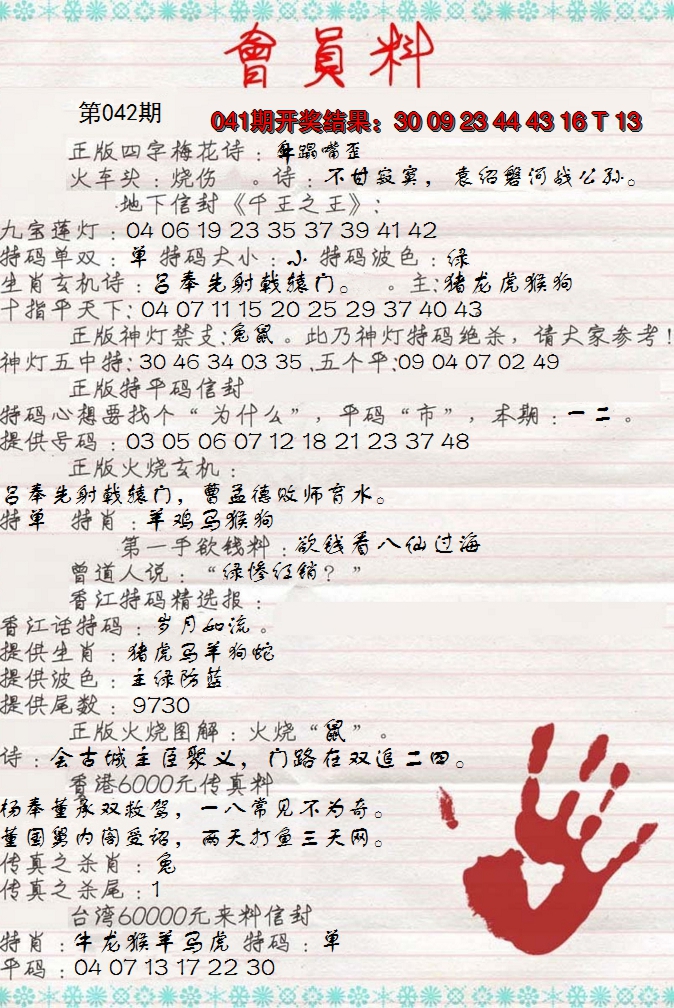 會員料
第042期
041期开奖结果：30 09 23 44 43 16 T 13
正版四字梅花诗：身蹋嘴歪
火车头：烧伤 。诗：不甘寂寞，袁绍磐河战公孙。
地下信封《千王之王》：
九宝莲灯：04 06 19 23 35 37 39 41 42
特码单双：单 特码大小：小 特码波色：绿
生肖玄机诗：吕奉先射戟辕门。 。主：猪龙虎猴狗
十指平天下：04 07 11 15 20 25 29 37 40 43
正版神灯禁支：兔鼠。此乃神灯特码绝杀，请大家参考！
神灯五中特：30 46 34 03 35 .五个平：09 04 07 02 49
正版特平码信封
特码心想要找个“为什么”，平码“市”，本期：一二。
提供号码：03 05 06 07 12 18 21 23 37 48
正版火烧玄机：
吕奉先射戟辕门，曹孟德败师育水。
特单 特肖：羊鸡马猴狗
第一手欲钱料：欲钱看八仙过海
曾道人说：“绿惨红销？”
香江特码精选报：
香江话特码：岁月如流。
提供生肖：猪虎马羊狗蛇
提供波色：主绿防蓝
提供尾数：9730
正版火烧图解：火烧“鼠”。
诗：会古城主臣聚义，门路在双追二四。
香港6000元传真料
杨奉董承双救驾，一八常见不为奇。
董国舅内阁受诏，两天打鱼三天网。
传真之杀肖：兔
传真之杀尾：1
台湾60000元来料信封
特肖：牛龙猴羊马虎 特码：单
平码：04 07 13 17 22 30